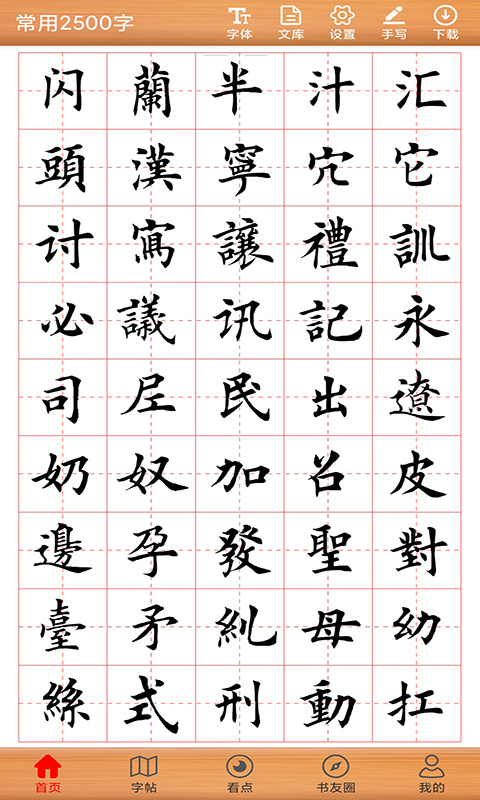 常用2500字 字体 文库 设置 手写 下载
闪蘭半汁汇
頭漢寧穴它
讨寫讓禮訓
必議讯記永
司尼民出遼
奶奴加召皮
邊孕發聖對
臺矛糾母幼
絲式刑動扛
首页 字帖 看点 书友圈 我的